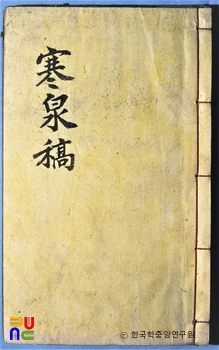 寒泉稿
ⓒ 한국학중앙연구원